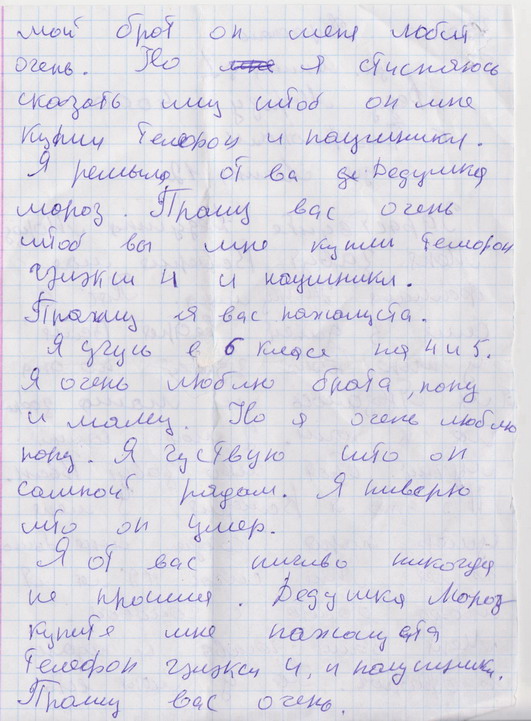 мой брат он мене любит
очень. Но мне я стисняюсь
сказать иму штоб он мне
купил телефон и наушники.
Я решыла от ва де Дедушка
мороз. Прашу вас очень
штоб вы мне купили телефон
гэлэкси 4 и наушники.
Прашу я вас пажалуста.
Я учусь в 6 класе на 4 и 5.
Я очень люблю брата, папу
и маму. Но я очень люблю
папу. Я чуствую што он
самной рядам. Я ниверю
што он умер.
Я от вас ничиво никогда
не прошила. Дедушка Мороз
купите мне пажалуста
телефон гэлэкси 4, и наушники.
Прашу вас очень.